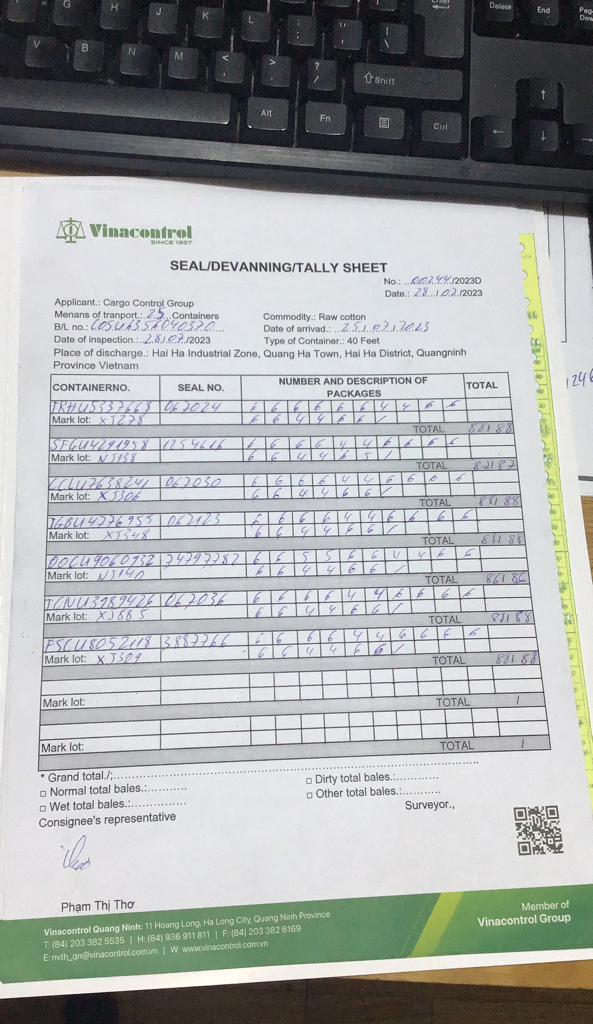 G H J K L : ; " ' Enter Delete End Page Down
V B N M < , > . ? / ⇧ Shift
Alt Fn Ctrl
Vinacontrol
SINCE 1957
SEAL/DEVANNING/TALLY SHEET
No.: 00244/2023D
Date.: 28/07/2023
Applicant.: Cargo Control Group
Menans of tranport.: 25 Containers Commodity.: Raw cotton
B/L no.: Date of arrival.: 25/07/2023
Date of inspection.: 28/07/2023 Type of Container.: 40 Feet
Place of discharge.: Hai Ha Industrial Zone, Quang Ha Town, Hai Ha District, Quangninh
Province Vietnam
CONTAINERNO. SEAL NO. NUMBER AND DESCRIPTION OF PACKAGES TOTAL
TRHU5337668 062024 6 6 6 6 6 6 4 4 6 6
Mark lot: XJ278 6 6 4 4 6 6 /
TOTAL 88/88
1254616 6 6 6 6 4 4 6 6 6 6
Mark lot: NJ138 6 6 4 4 6 5 /
TOTAL 87/87
CCLU7638241 062030 6 6 6 6 4 4 6 6 6 6
Mark lot: XJ306 6 6 4 4 6 6 /
TOTAL 88/88
TGBU4776955 062123 6 6 6 6 4 4 6 6 6 6
Mark lot: XJ348 6 6 4 4 6 6 /
TOTAL 88/88
OOCU9060932 6 6 5 5 6 6 4 4 6 6
Mark lot: NJ140 6 6 4 4 6 6 /
TOTAL 86/86
TCNU3989426 062036 6 6 6 6 4 4 6 6 6 6
Mark lot: XJ885 6 6 4 4 6 6 /
TOTAL 88/88
FSCU8052118 3887766 6 6 6 6 4 4 6 6 6 6
Mark lot: XJ309 6 6 4 4 6 6 /
TOTAL 88/88
Mark lot:
TOTAL /
Mark lot:
TOTAL /
* Grand total./:
□ Normal total bales.: □ Dirty total bales.:
□ Wet total bales.: □ Other total bales.:
Consignee's representative Surveyor.,
Phạm Thị Thơ
Vinacontrol Quang Ninh: 11 Hoang Long, Ha Long City, Quang Ninh Province
T: (84) 203 382 5535 | H: (84) 936 911 811 | F: (84) 203 382 6169
E: nvth_qn@vinacontrol.com.vn | W: www.vinacontrol.com.vn
Member of
Vinacontrol Group
1246